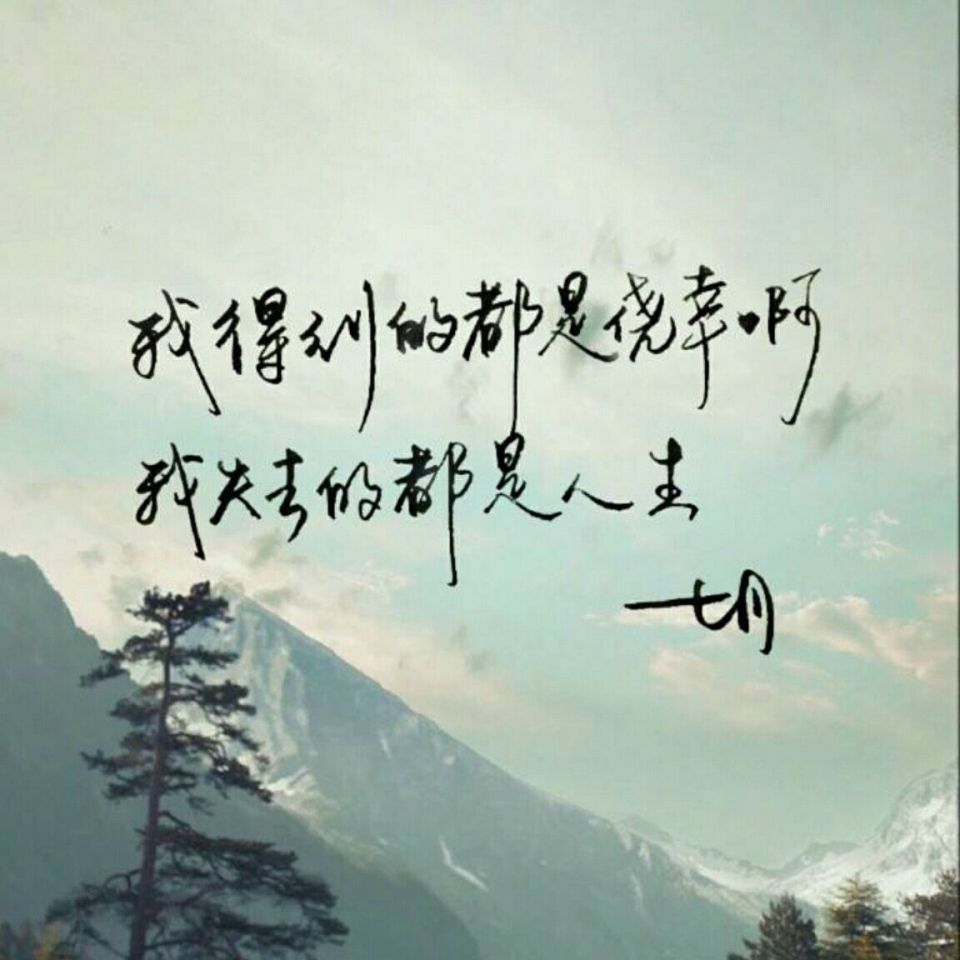 我得到的都是侥幸啊
我失去的都是人生
七月